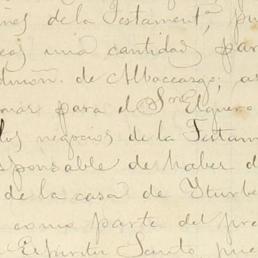 nes de la Testament,ª pu
eos una cantidad par
dmon. de Alboceasgo; a
mas para el Sor. Elguero
los negocios de la Testam
sponsable de haber d
de la casa de Yturbe
como parte del pre
Espiritu Santo pue